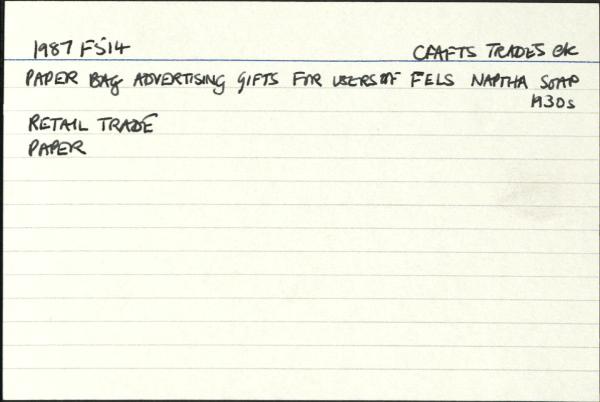 1987 FS14 CRAFTS TRADES etc
PAPER BAG ADVERTISING GIFTS FOR USERS OF FELS NAPTHA SOAP
1930s
RETAIL TRADE
PAPER